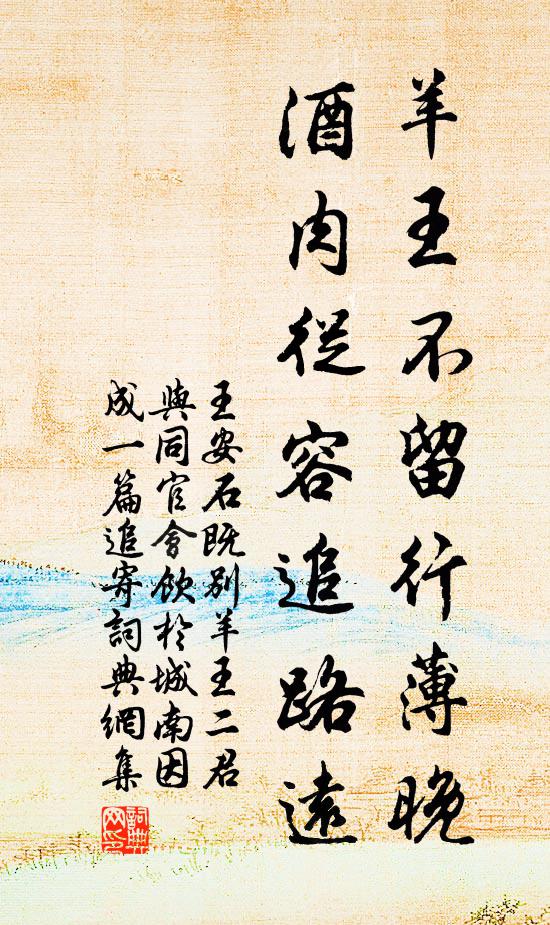 羊王不留行薄晚
酒肉從容追路遠
王安石既別羊王二君
與同官會飲於城南因
成一篇追寄詞典網集
詞典
网印